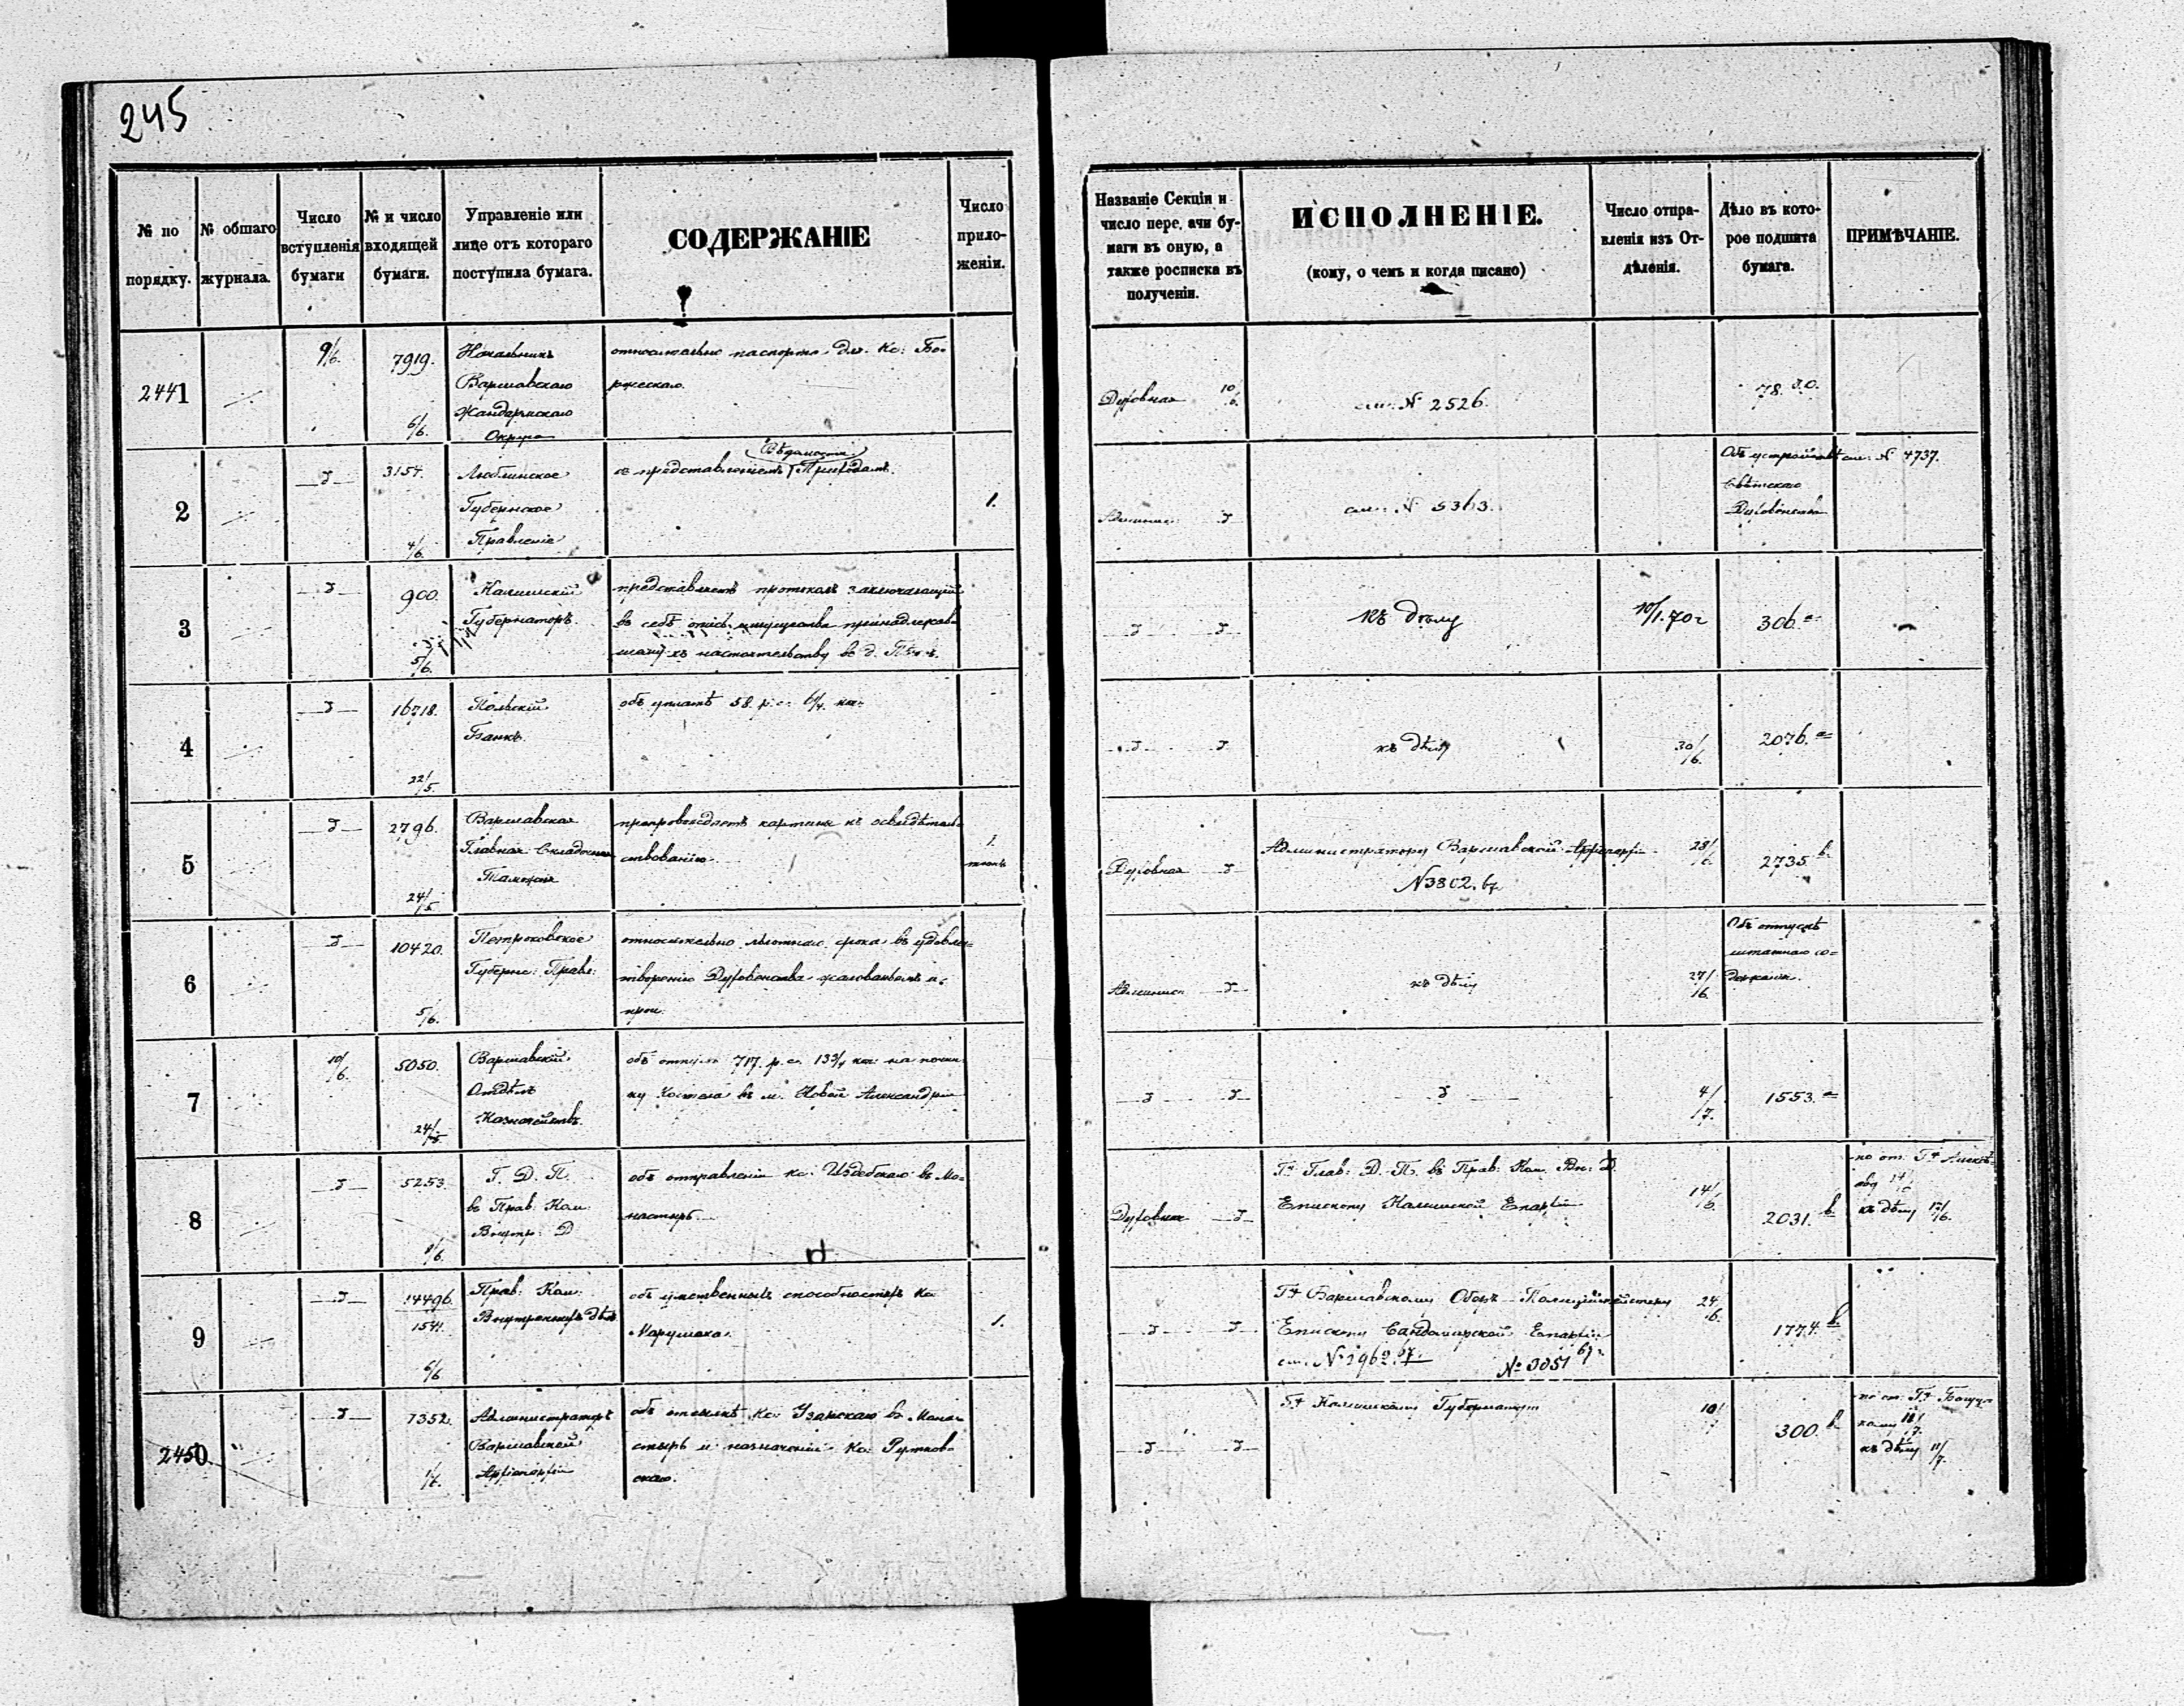 245
№ по порядку.
№ общаго журнала.
Число вступленія бумаги
№ и число входящей бумаги.
Управленіе или лице отъ котораго поступила бумага.
СОДЕРЖАНІЕ
Число приложеніи.
Названіе Секціи и число передачи бумаги въ оную, а также росписка въ полученіи.
ИСПОЛНЕНІЕ.
(кому, о чемъ и когда писано)
Число отправленія изъ Отдѣленія.
Дѣло въ которое подшита бумага.
ПРИМѢЧАНІЕ.
2441
9/6.
7919.
6/6.
Начальникъ
Варшавскаго
Жандармскаго
Округа
относительно паспорта для Кс:
Духовная 10/6.
см: № 2526.
78.
2
3154.
4/6.
Люблинское
Губернское
Правленіе
съ представленіемъ Вѣдомости Приходамъ.
1.
см: № 5363.
Объ устройствѣ
Свѣтскаго
Духовенства
см: № 4737.
3
900.
5/6.
Калишскій
Губернаторъ.
представляетъ протоколъ заключающій
въ себѣ опись имущества принадлежав-
шаго къ настоятельству въ д.
къ дѣлу
10/1.70 г
306. a
4
16718.
22/5.
Польскій
Банкъ.
объ уплатѣ 58. р. с. 6 1/4. ко:
къ дѣлу
30/6.
2076. a
5
2796.
24/5.
Варшавская
Главная Складочная
Таможня
препровождаетъ картины къ освидѣтель-
ствованію.
1.
Духовная
Администратору Варшавской Архіепархіи
№ 3802. 67
28/6.
2735. b.
6
10420.
5/6.
Петроковское
Губернс: Правл:
относительно льготнаго срока въ удовле-
твореніи Духовенства жалованьемъ и
проч.
къ дѣлу
27/6.
Объ отпускѣ
штатнаго со-
держанія.
7
10/6.
5050.
24/5.
Варшавскій
Отдѣлъ
Казначейства.
объ отпускѣ 717. р. с. 13 3/4 ко: на почин-
ку Костела въ м. Новой Александріи
4/7.
1553. a
8
5253.
8/6.
Г. Д. П.
въ Прав: Ком:
Внутр: Д
объ отправленіи кс: Издебскаго въ Мо-
настырь
Духовная
Гл. Глав: Д. П. въ Прав: Ком. Вн: Д.
Епископу Калишской Епархіи
14/6.
2031. b
къ дѣлу 17/6.
9
14496.
1541.
6/6
Прав: Ком:
Внутреннихъ Дѣлъ
объ умственныхъ способностяхъ Кс
1.
Варшавскому Оберъ-Полиціймейстеру
Епископу Сандомирской Епархіи
см. № 2962. 67.
№ 3051 67 г
24/6.
1774. b
2450
1352.
Администраторъ
Варшавской
Архіепархіи
объ отсылкѣ Кс: въ Мона-
стырь и назначеніи Кс: Рутков-
скаго.
Калишскому Губернатору
10/7
300. b
къ дѣлу 11/7.